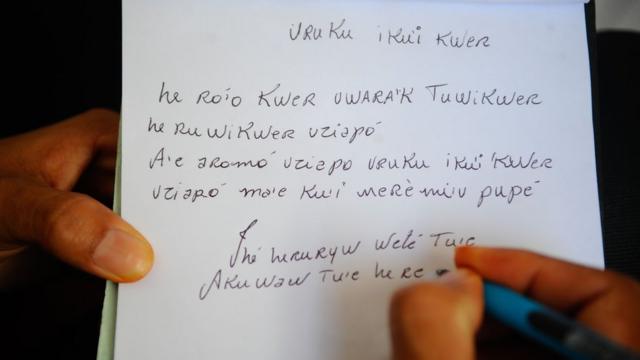 URUKU iKu'i KWER
he Ro'o KWER UWARA'K TuWiKWER
he Ru WiKWER uziapó
A'e aromó uziapo uRuKu iKu'i 'KWER
uziapó ma'e Ku'i merè miu pupé
Ihé heRuRyw Weté Tu'e
AKu waw Tu'e he Re